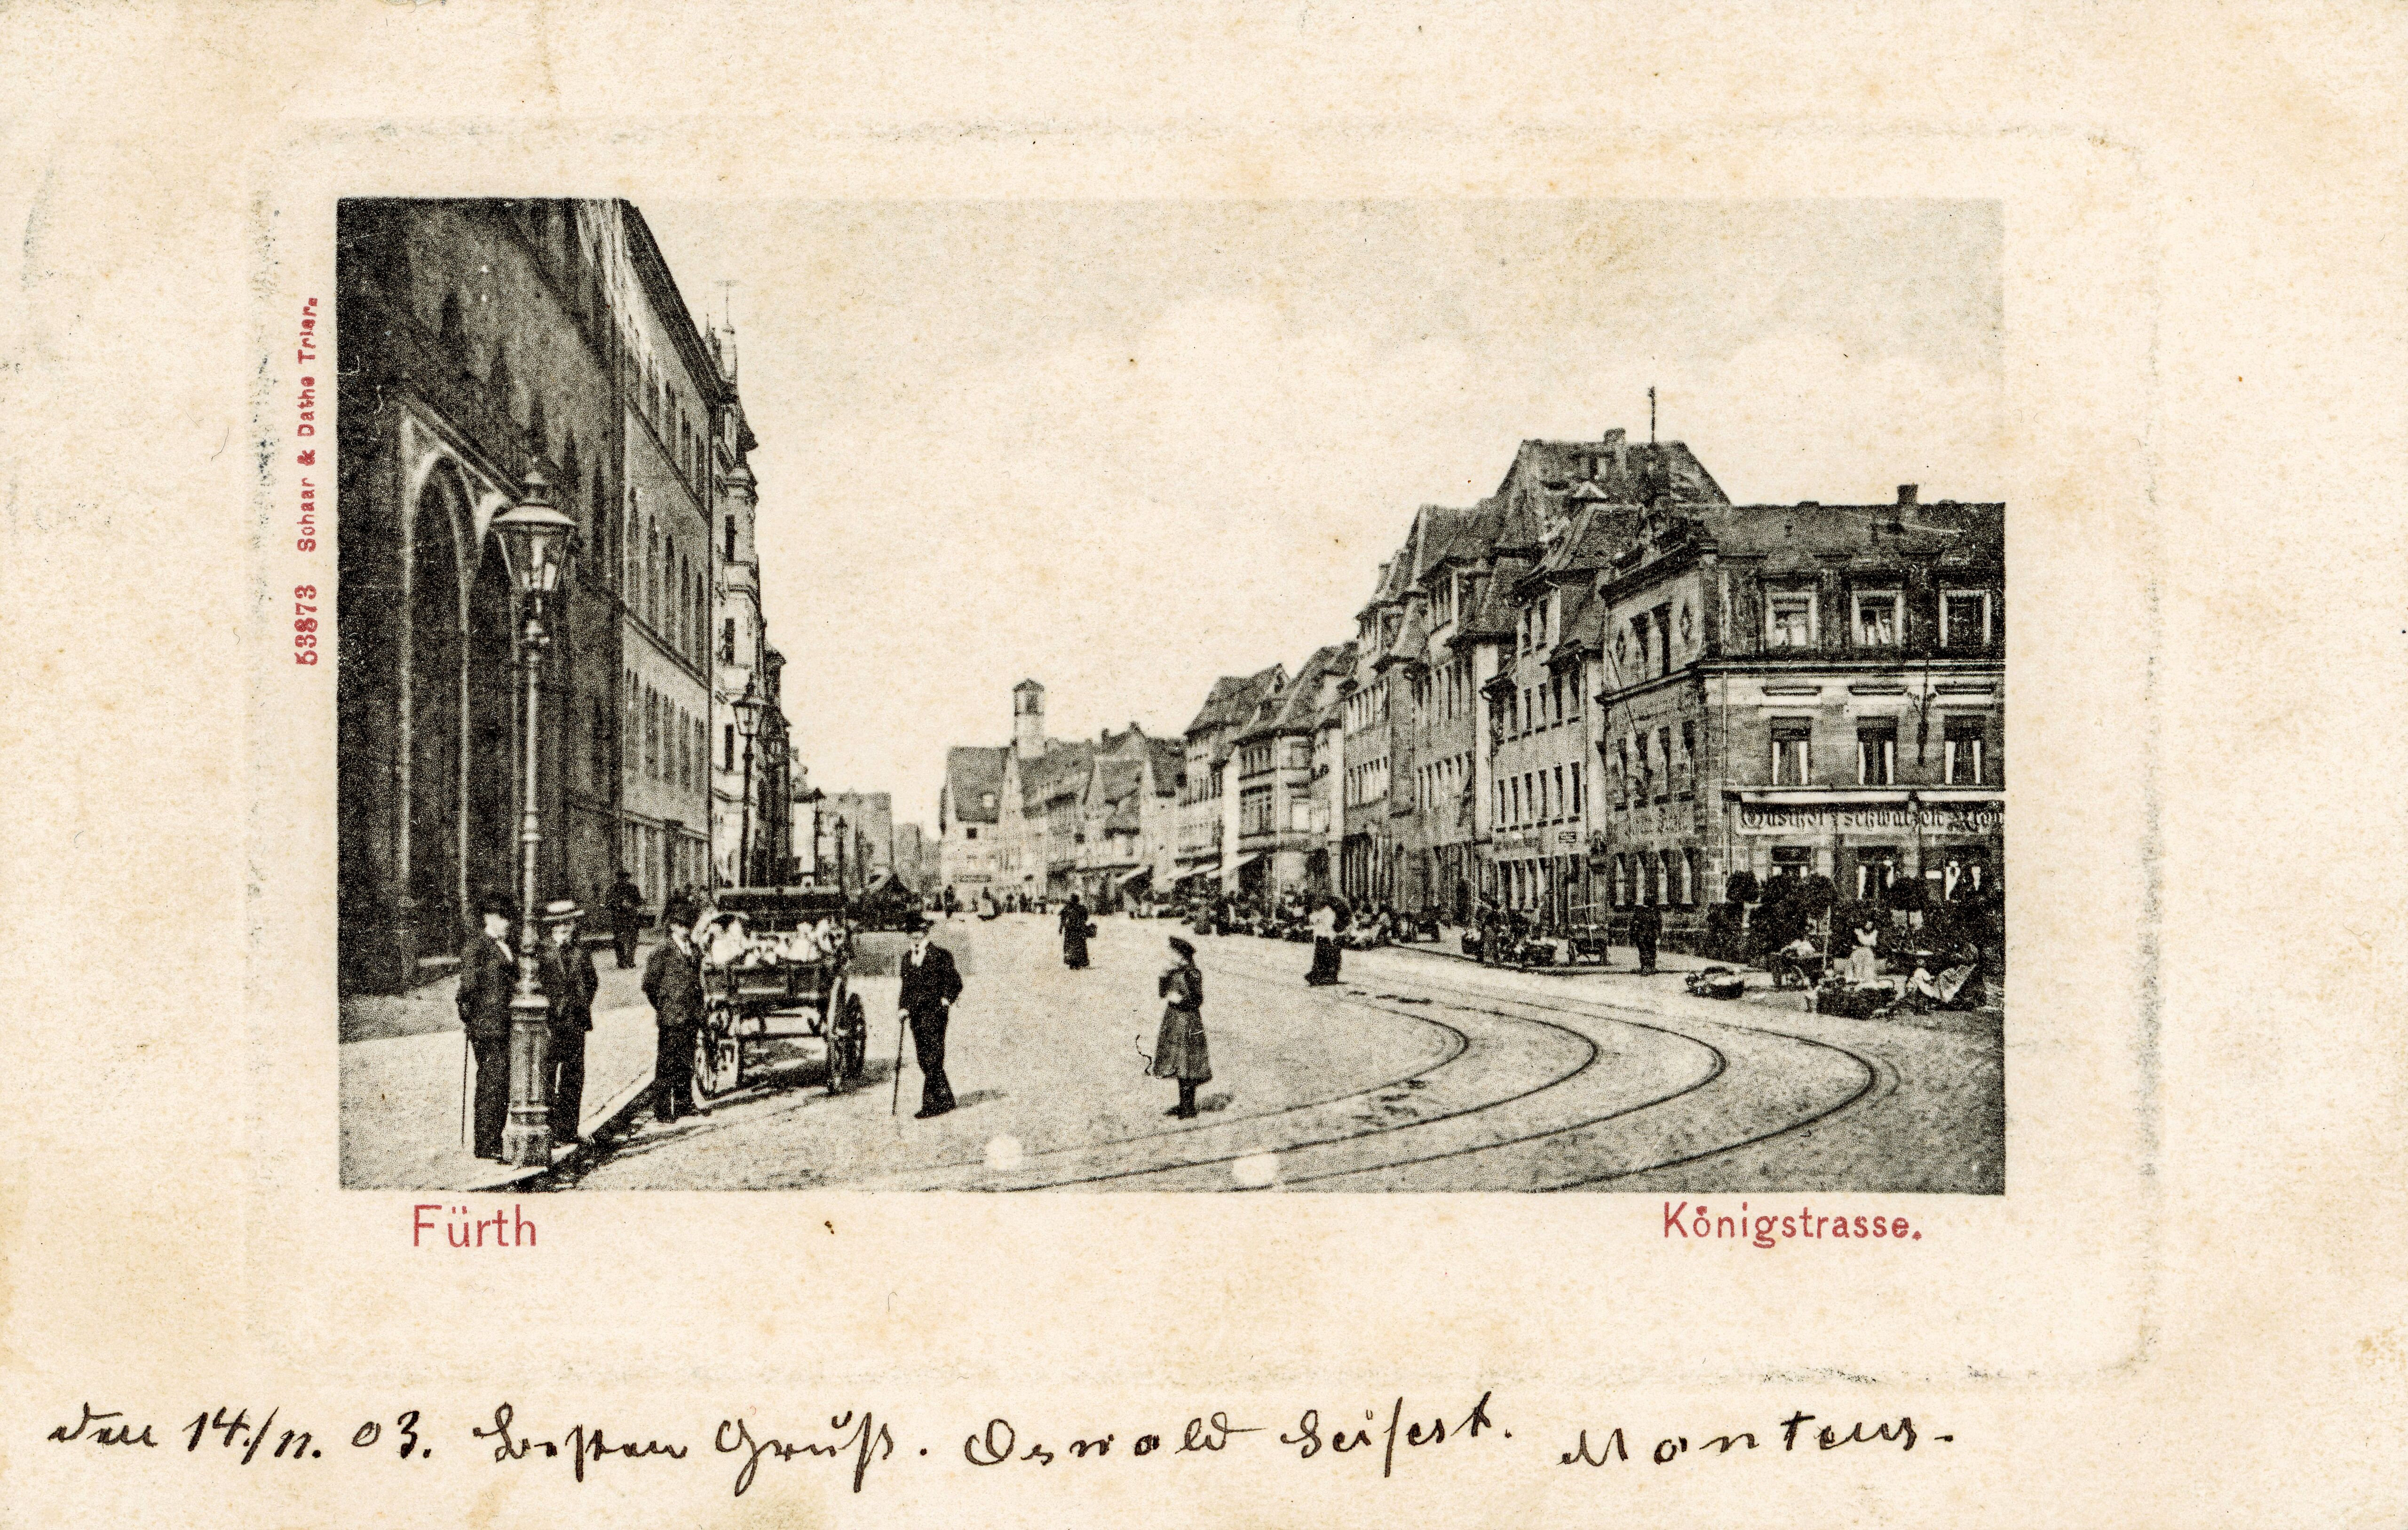 53873 Schaar & Dathe Trier.
Gasthof z. schwarzen
Fürth
Königstrasse.
den 14./11. 03. Besten Gruß. Oswald Seifert. Monteur.